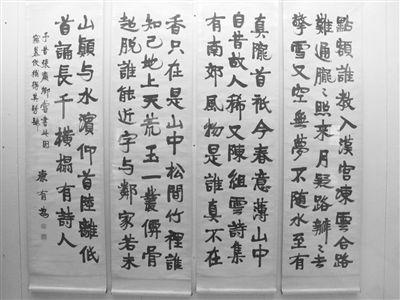 點額誰教入漢宮凍雲合路
難通朧〻照來月疑路辦〻去
擎雪又空無夢不隨水至有
真隴首祇今春意薄山中
自昔故人稀又陳組雲詩集
有南郊風物是誰真不在
香只在是山中松間竹裡誰
知己地上天荒玉一叢僊骨
超脫誰能近字與鄰家若未
山顛与水濱仰首陸離低
首誦長千橫榻有詩人
予昔張廉卿嘗書此因
康有為